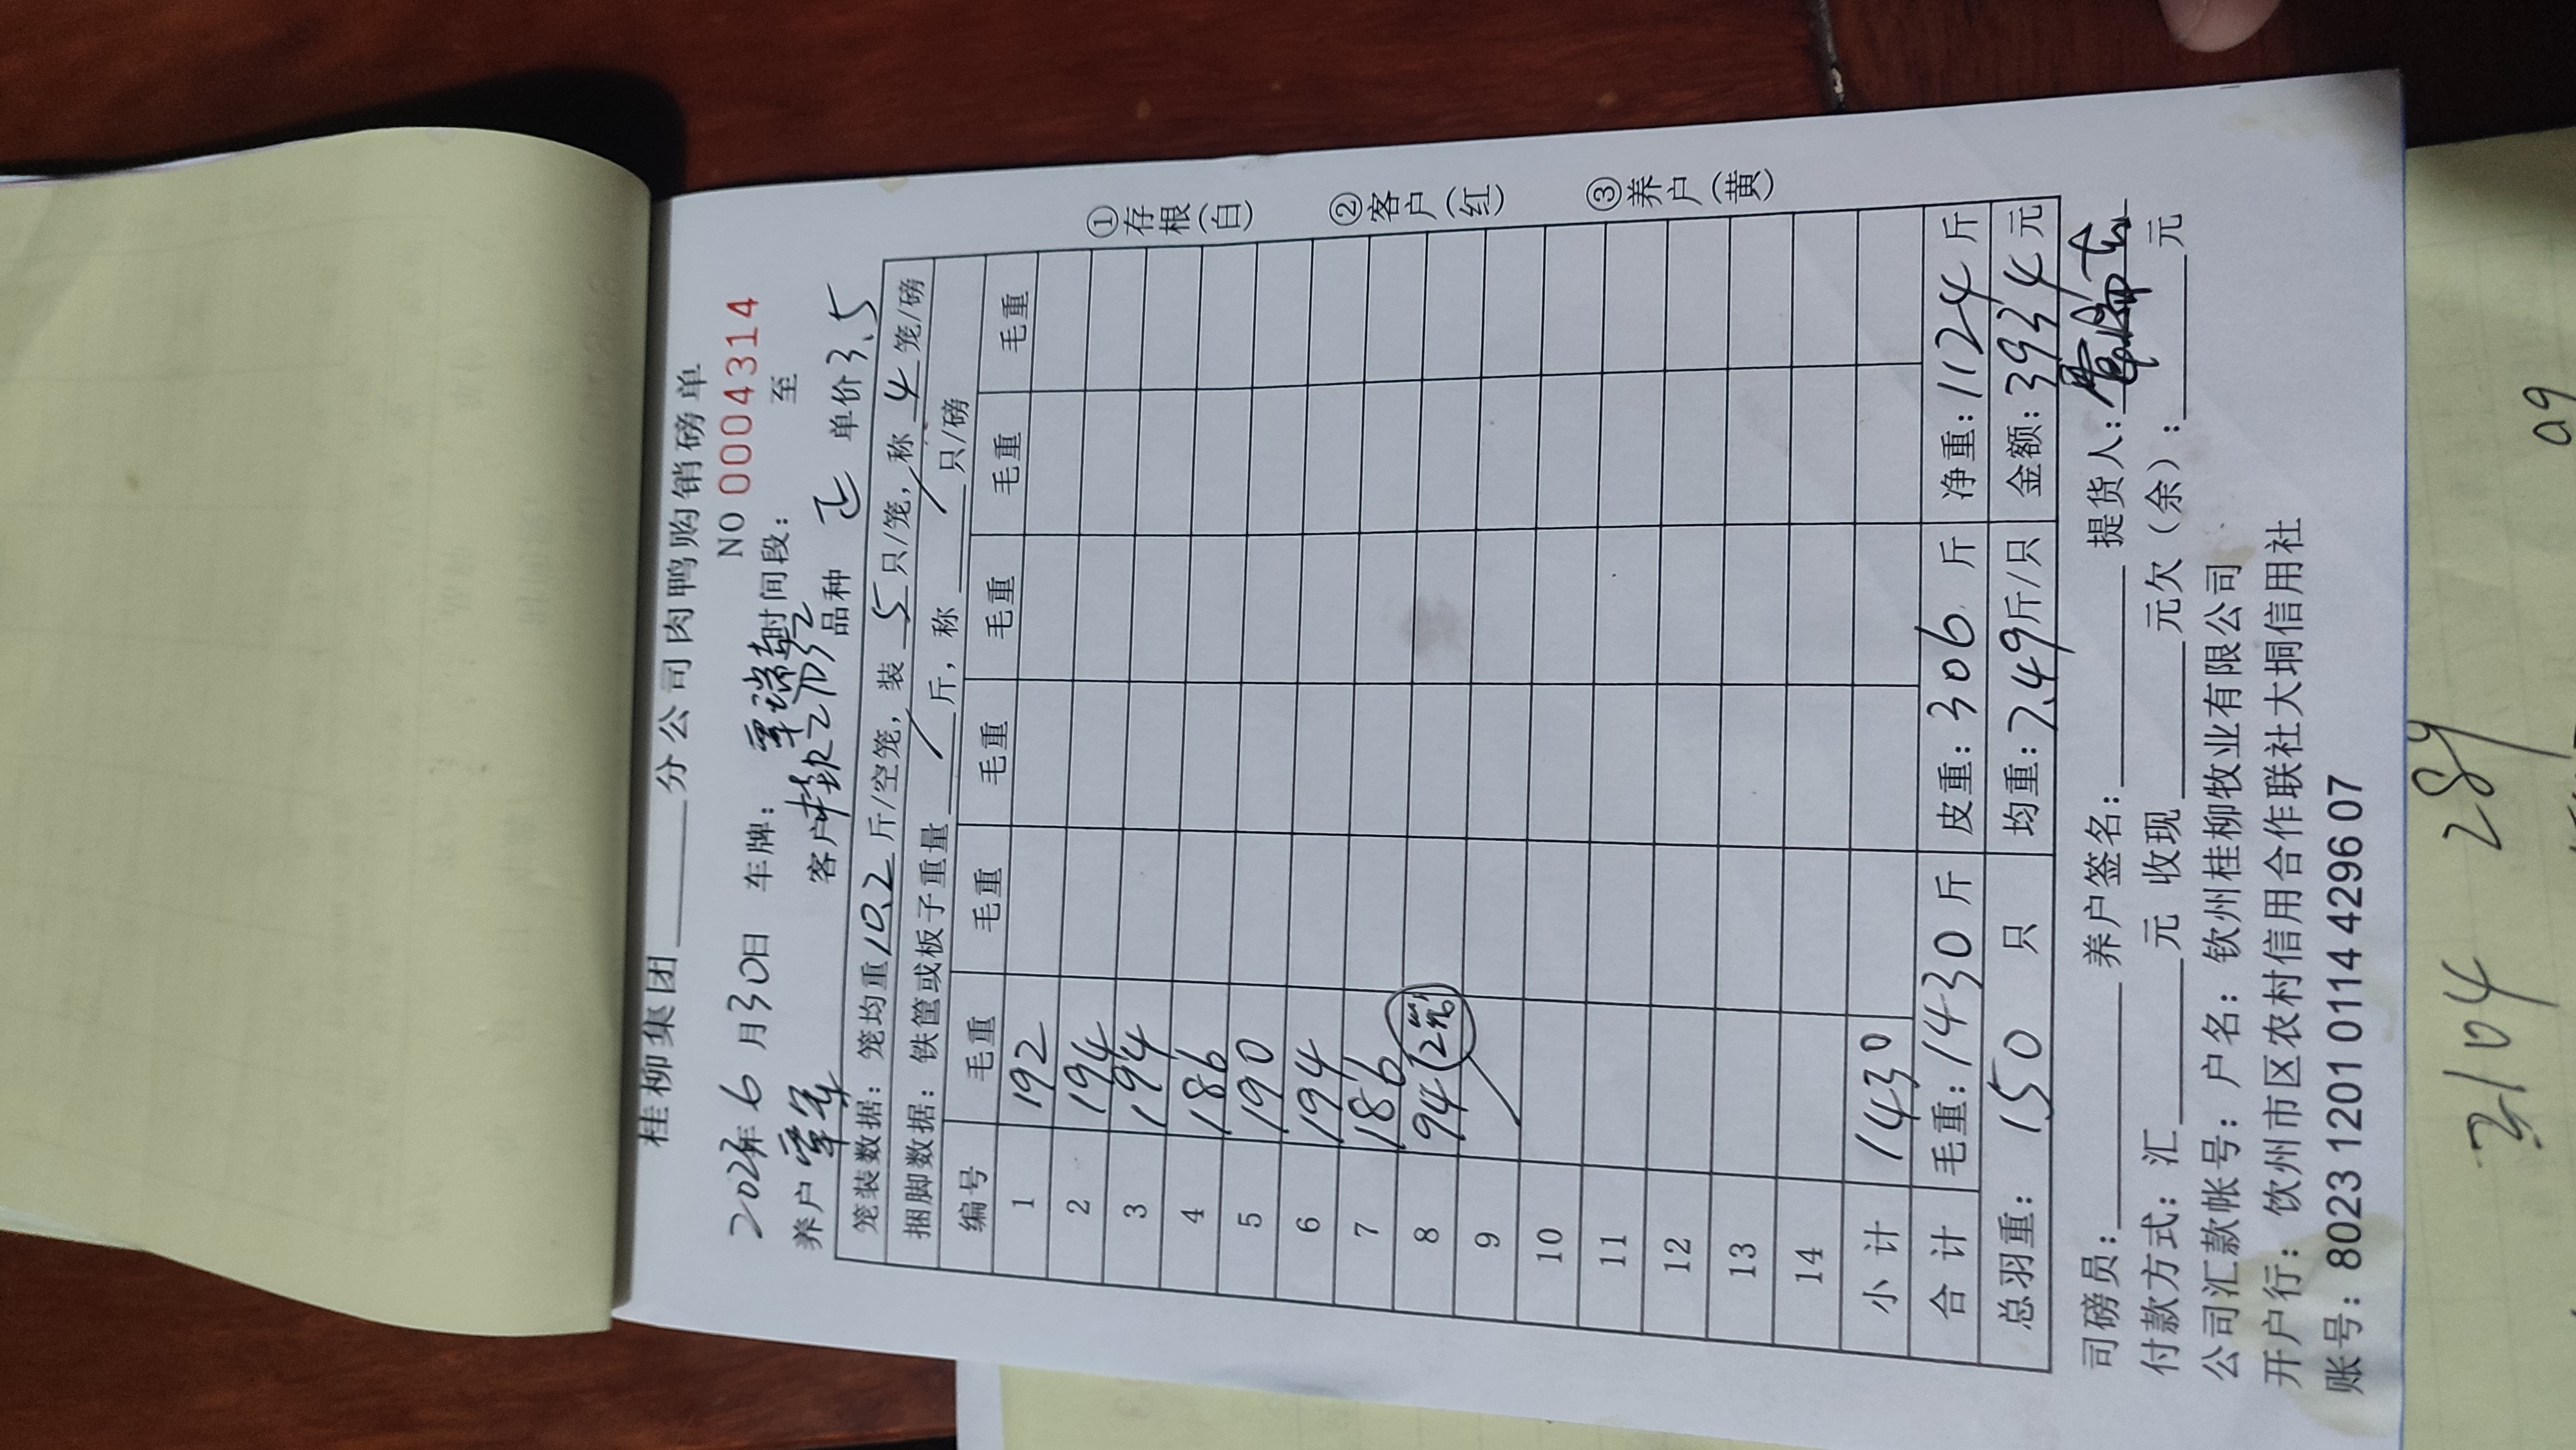 桂柳集团______分公司肉鸭购销磅单
NO 00004314
2023年6月30日 车牌: 覃瑞 时间段: 至
养户 覃 客户 品种 正 单价 3.5
笼装数据: 笼均重10.2斤/空笼, 装 5 只/笼, 称 4 笼/磅
捆脚数据: 铁筐或板子重量 / 斤, 称 / 只/磅
编号 毛重 毛重 毛重 毛重 毛重 毛重
1 192
2 194
3 194
4 186
5 190
6 194
7 186
8 94 (2笼)
9
10
11
12
13
14
小计 1430
合计 毛重: 1430 斤 皮重: 306 斤 净重: 1124 斤
总羽重: 150 只 均重: 7.49斤/只 金额: 3934元
司磅员: 养户签名: 提货人:
付款方式: 汇______元 收现______元欠(余): ______元
公司汇款帐号: 户名: 钦州桂柳牧业有限公司
开户行: 饮州市区农村信用合作联社大垌信用社
账号: 8023 1201 0114 4296 07
①存根(白)
②客户(红)
③养户(黄)
2104 289